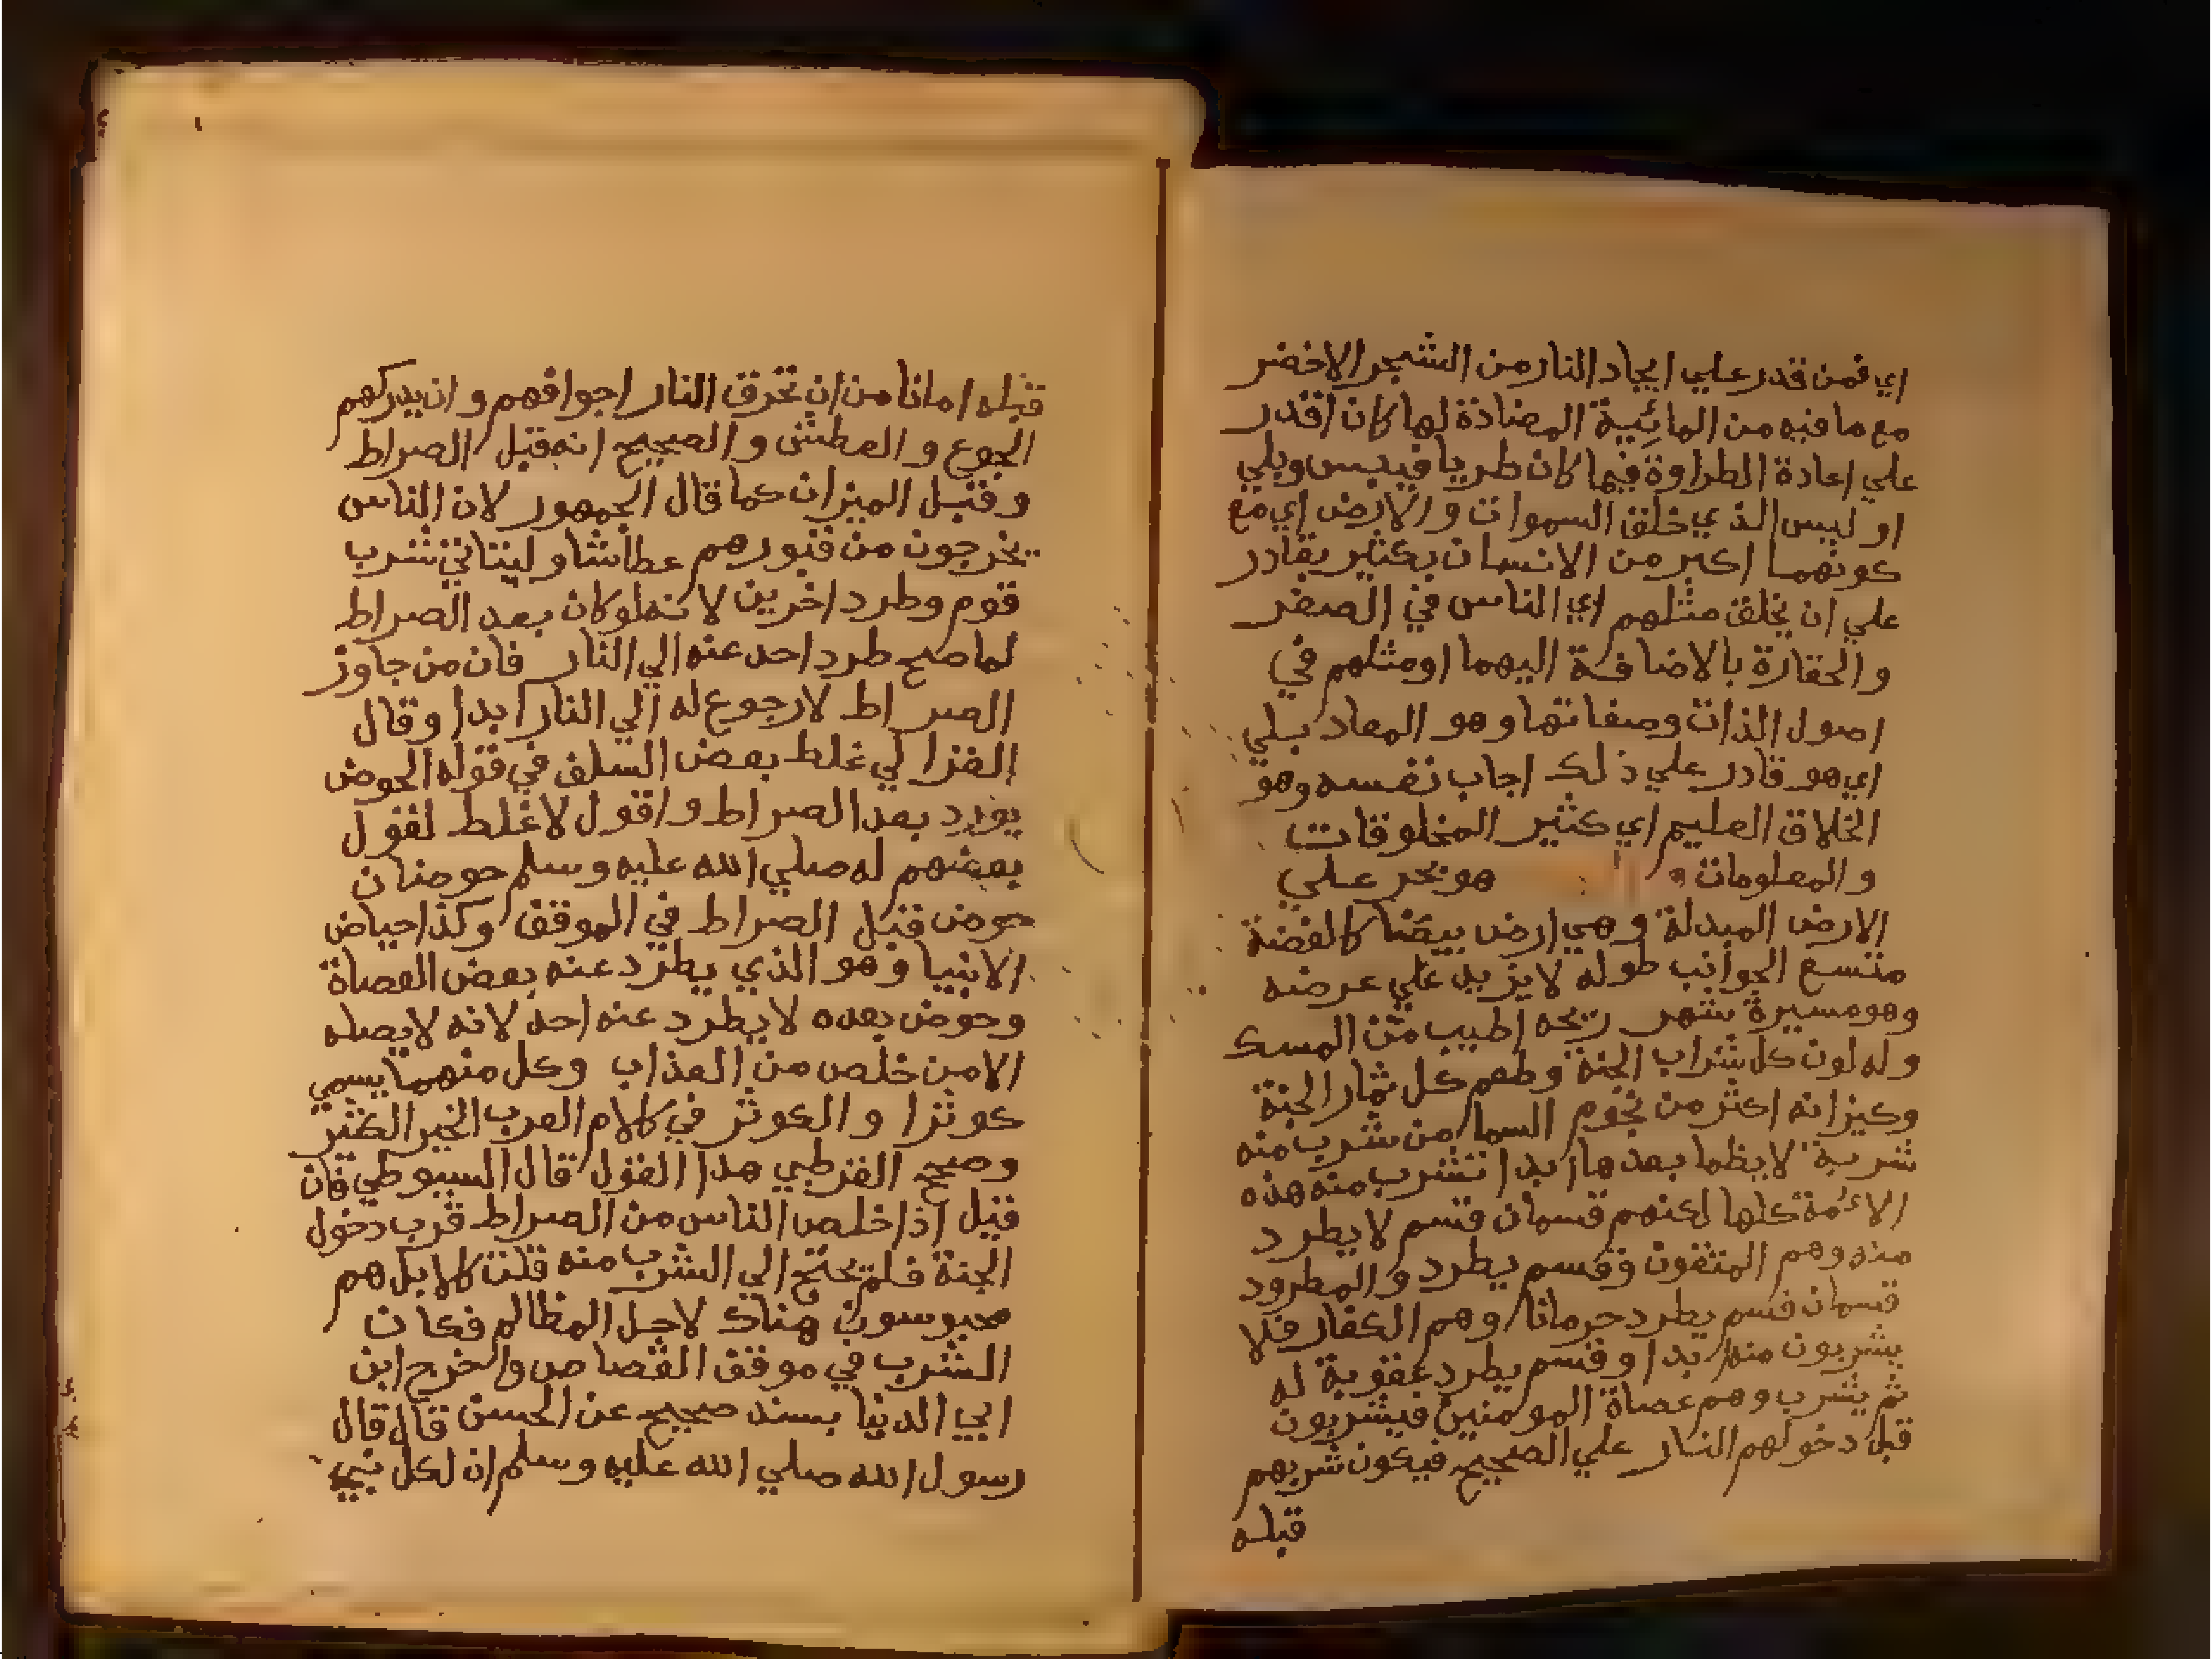 اي فمن قدر علي ايجاد النار من الشجر الاخضر
مع ما فيه من المائية المضادة لها كان اقدر
علي اعادة الطراوة فيما كان طريا فيبس وبلي
او ليس الذي خلق السموات و الارض اي مع
كونهما اكبر من الانسان بكثير بقادر
علي ان يخلق مثلهم اي الناس في الصغر
و الحقارة بالاضافة اليهما او مثلهم في
اصول الذات وصفاتها وهو المعاد بلي
اي هو قادر علي ذلك اجاب نفسه وهو
الخلاق العليم اي كثير المخلوقات
و المعلومات و هو بحر علي
الارض المبدلة وهي ارض بيضا كالفضة
متسع الجوانب طوله لا يزيد علي عرضه
وهو مسيرة شهر ريحه اطيب من المسك
و له لون كل شراب الجنة وطعم كل ثمار الجنة
وكيزانه اكثر من نجوم السما من شرب منه
شربة لا يظما بعدها ابدا تشرب منه هذه
الائمة كلها لكنهم قسمان قسم لا يطرد
منه وهم المتقون وقسم يطرد و المطرود
قسمان قسم يطرد حرمانا وهم الكفار فلا
يشربون منه ابدا و قسم يطرد عقوبة له
ثم يشرب وهم عصاة المومنين فيشربون
قبل دخولهم النار علي الصحيح فيكون شربهم
قبله
قبله امانا من ان تحرق النار اجوافهم و ان يدركهم
الجوع و العطش و الصحيح انه قبل الصراط
و قبل الميزان كما قال الجمهور لان الناس
يخرجون من قبورهم عطاشا و ليتاتي شرب
قوم وطرد اخرين لانه لو كان بعد الصراط
لما صح طرد احد عنه الي النار فان من جاوز
الصراط لا رجوع له الي النار ابدا وقال
الغزالي غلط بعض السلف في قوله الحوض
يورد بعد الصراط و اقول لا غلط لقول
بعضهم له صلي الله عليه وسلم حوضان
حوض قبل الصراط في الموقف وكذا حياض
الانبيا وهو الذي يطرد عنه بعض العصاة
وحوض بعده لا يطرد عنه احد لانه لا يصله
الا من خلص من العذاب وكل منهما يسمي
كوثرا و الكوثر في كلام العرب الخير الكثير
وصحح القرطبي هذا القول قال السيوطي فان
قيل اذا خلص الناس من الصراط قرب دخول
الجنة فلم يحتج الي الشرب منه قلت كلا بل هم
محبوسون هناك لاجل المظالم فكان
الشرب في موقف القصاص و اخرج ابن
ابي الدنيا بسند صحيح عن الحسن قال قال
رسول الله صلي الله عليه وسلم ان لكل نبي